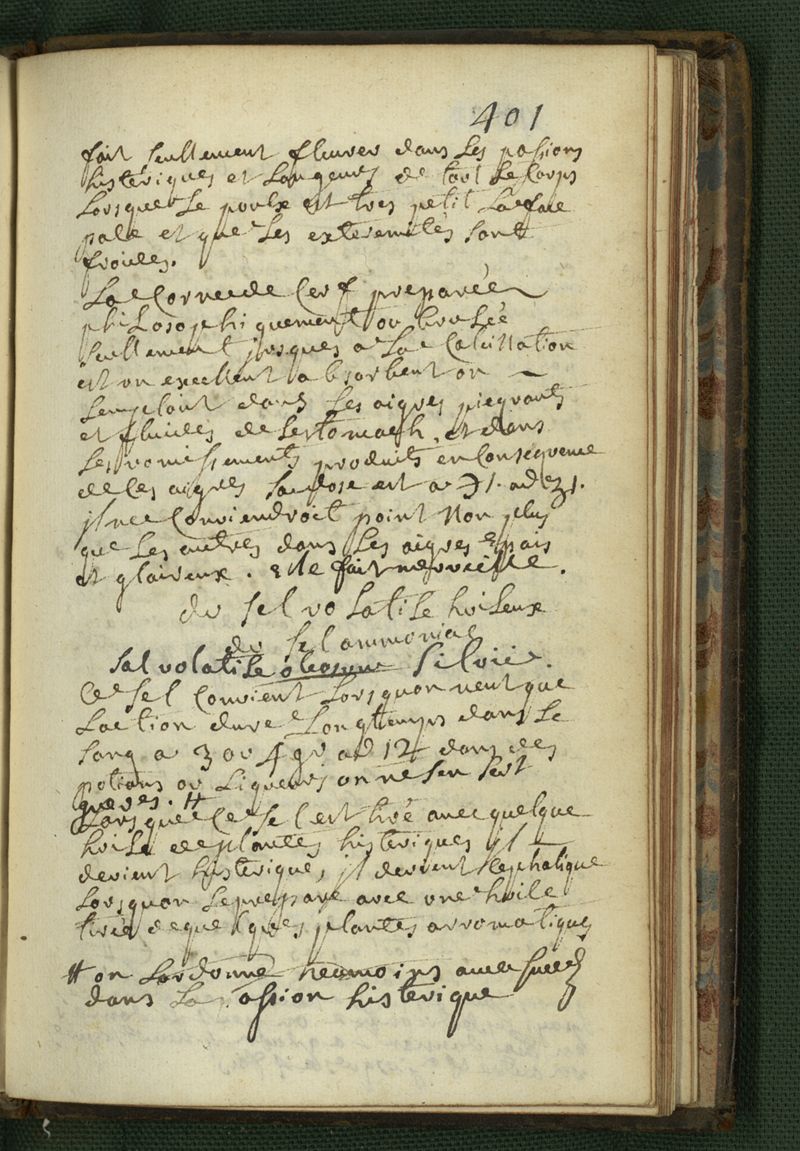 401
fait seullement fleurer dans Les passions
histeriques et Langeurs de tout Le Corps
Lorsque Le poulx est tres petit La face
pale et que Les exteremités sont
froides.
La Corne de Cerf preparée
philosophiquement ou brulée
seullement jusques a La Calcination
est un excellent absorbent on
Lemploit dans Les aigres picquants
et fluides de Lestomach, et dans
Les vomissements produits en Consequence
de Ces aigres La dose est a ℈1. ad ʒ1.
jl ne Conviendroit point Non plus
que Les autres dans Les aigres epais
et glaireux. elle fait merveille.
du sel volatile huileux
du sel ammoniac
sal volatile oleosum Silvii.
Ce sel Convient Lorsquon veut que
Laction dure Longtemps dans Le
sang a 3 ou 4 gr ad 12 dans des
potions ou Liqueurs on ne sen sert
gueres. #
Lorsque Ce sel est tiré avec quelque
huile de plantes histeriques jl
devient histerique, jl devient Cephalique
Lorsquon Le prepare avec une huile
tirée de quelques plantes arromatiques
# on Lordonne neamoins avec succes
dans La passion histerique